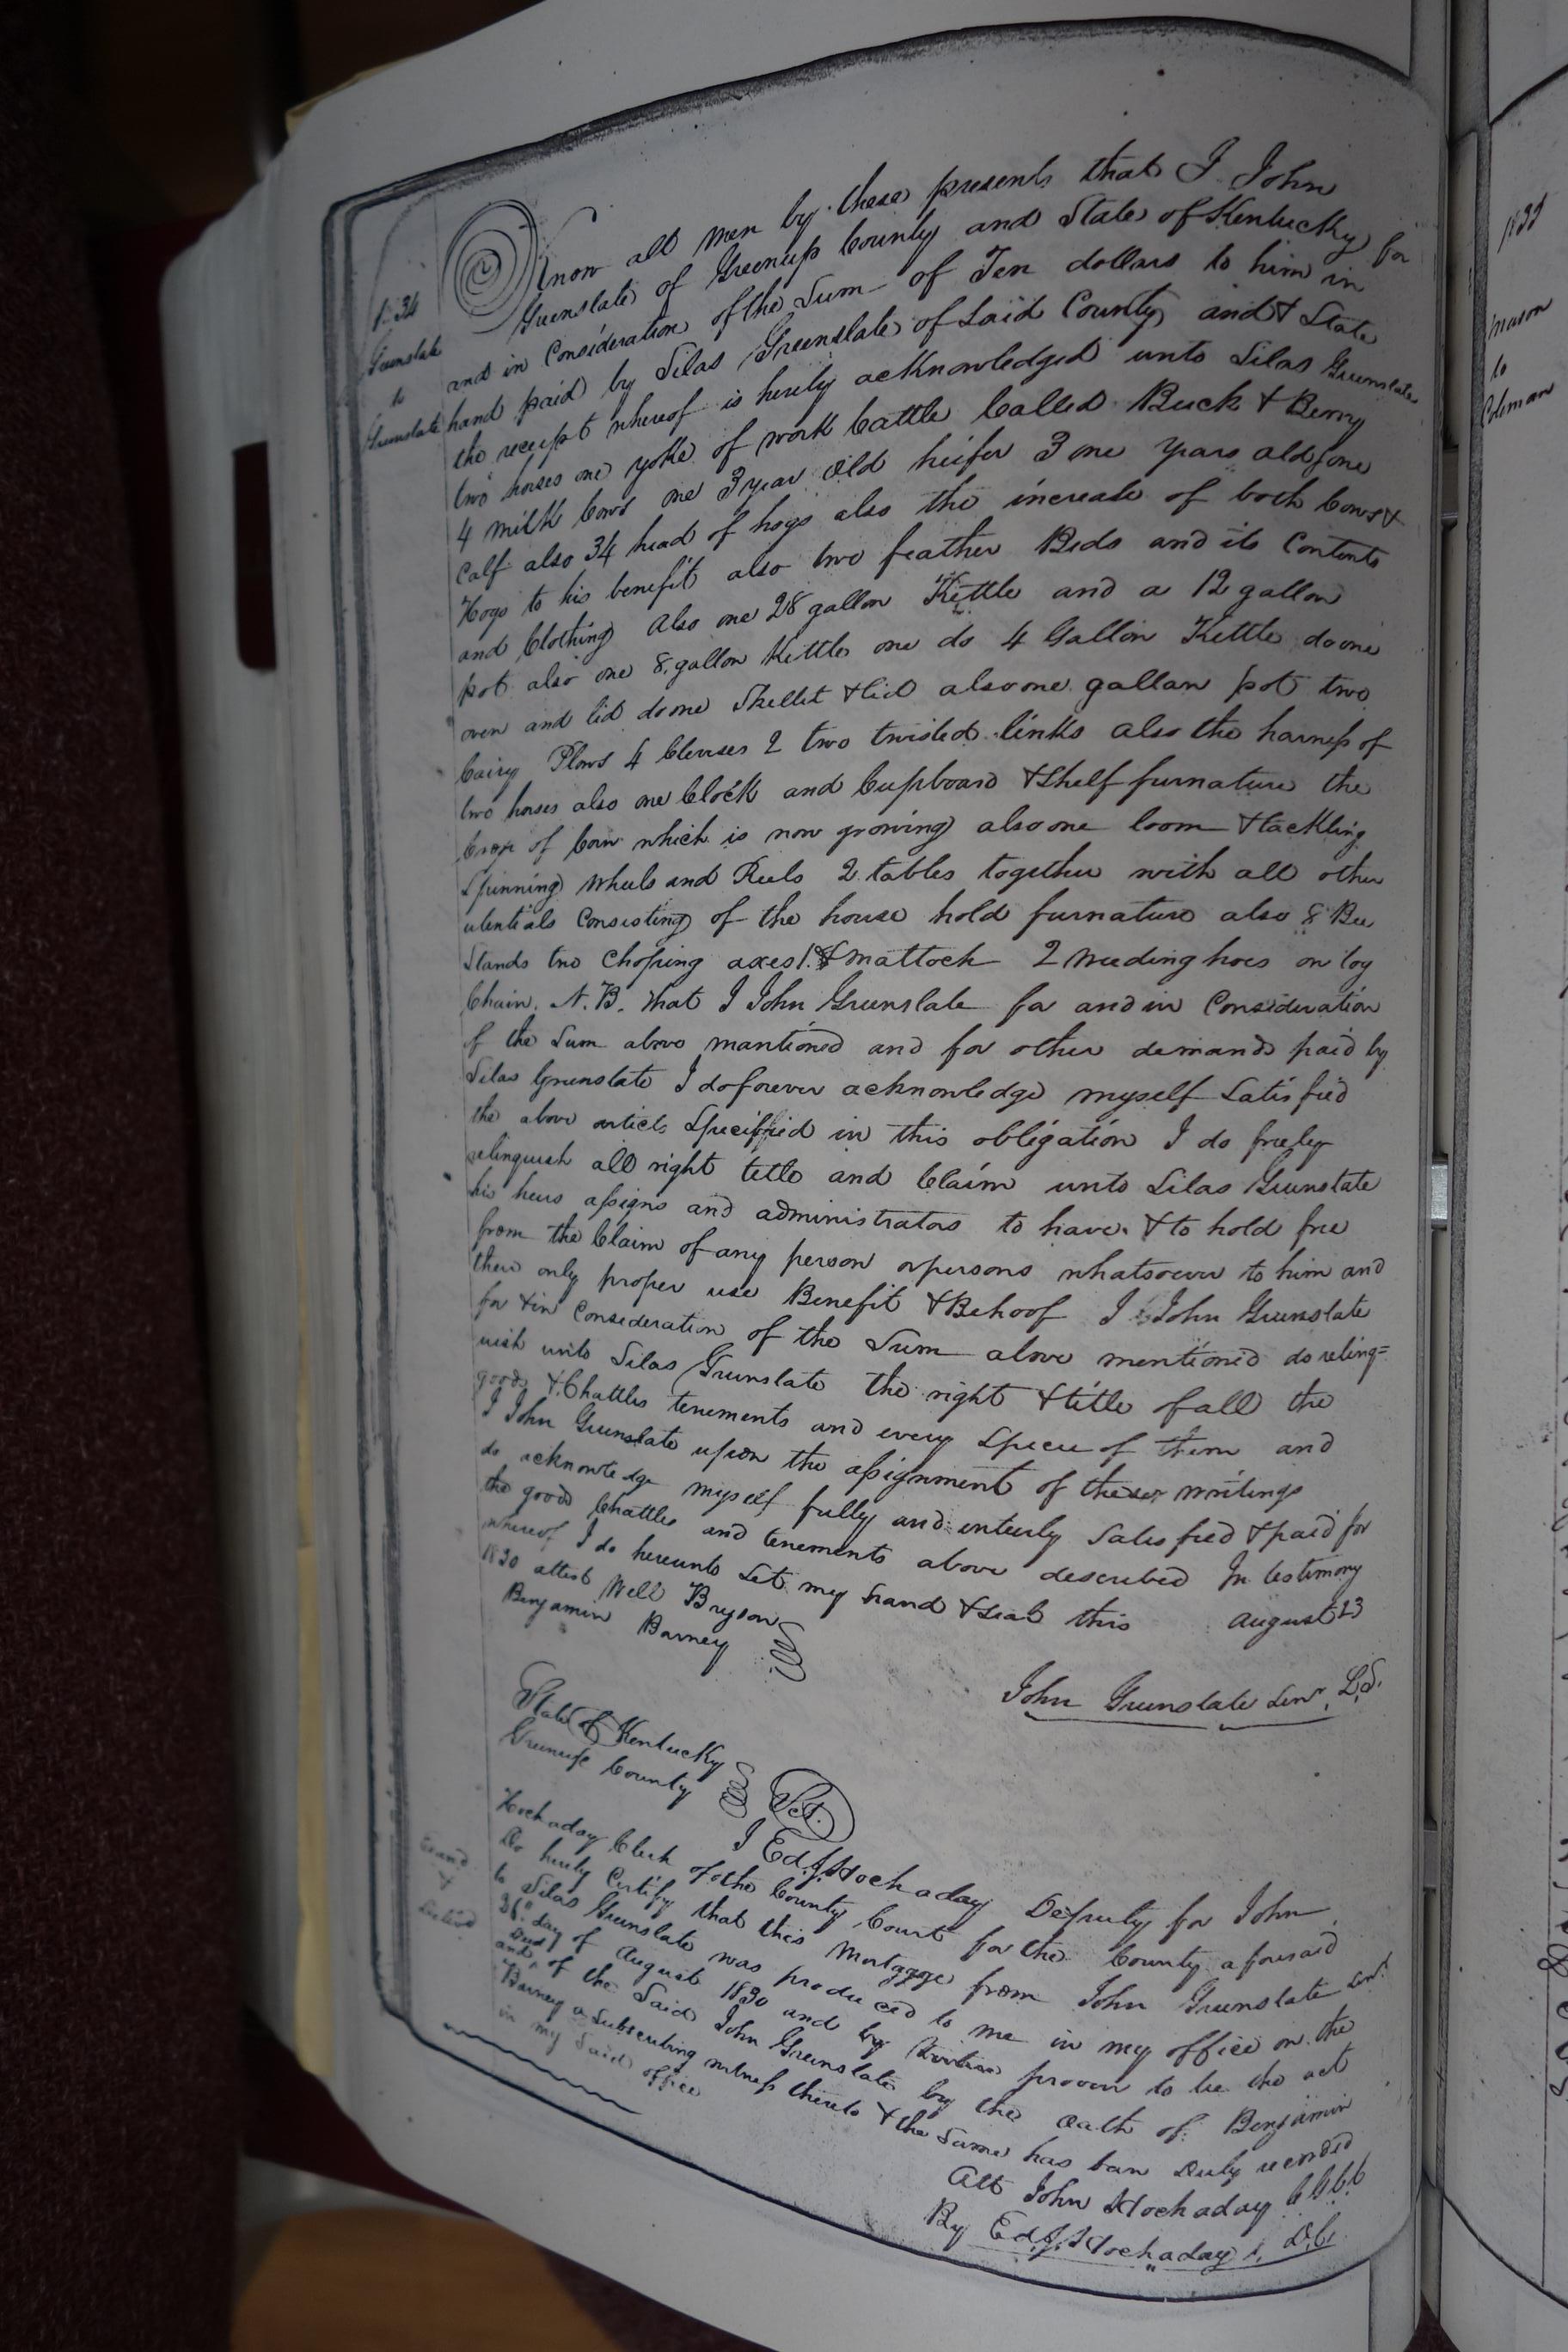 Know all men by these presents that I John
Greenslate of Greenup County and State of Kentucky for
and in Consideration of the Sum of Ten dollars to him in
hand paid by Silas Greenslate of Said County and & State
the receipt whereof is herily acknowledged unto Silas Greenslate
two horses one yoke of work Cattle Called Buck & Berry
4 milk Cows one 3 year old heifer 3 one years old one
Calf also 34 head of hogs also the increase of both Cows &
Hogs to his benefit also two feather Beds and its Contents
and Clothing Also one 28 gallon Kettle and a 12 gallon
pot also one 8 gallon Kettle one do 4 Gallon Kettle do one
oven and lid do one Skellet & lid also one gallan pot two
Cairy Plows 4 Clevises 2 two twisted links also the harness of
two horses also one Clock and Cupboard & Shelf furnature the
Crop of Corn which is now growing also one loom & tackling
Spinning Wheels and Reels 2 tables together with all other
utentials Consisting of the house hold furnature also 8 Bee
Stands two Choping axes 1 & mattock 2 Weeding hoes on log
Chain. N.B. that I John Greenslate for and in Consideration
of the Sum above mantioned and for other demands paid by
Silas Greenslate I do forever acknowledge myself Satisfied
the above articls Specified in this obligation I do freely
relinquish all right title and Claim unto Silas Greenslate
his heirs assigns and administrators to have & to hold free
from the Claim of any person or persons whatsoever to him and
there only proper use Benefit & Behoof I John Greenslate
for & in Consideration of the Sum above mentioned do relinq=
uish unto Silas Greenslate the right & title of all the
goods & Chattles tenements and every Specie of them and
I John Greenslate upon the assignment of these writings
do acknowledge myself fully and enterly Satisfied & paid for
the goods Chattles and tenements above described In testimony
whereof I do hereunto Set my hand & seal this August 23
1830 attest Will Bryson
Benjamin Barney
John Greenslate Senr. L.S.
1.34
Greenslate
to
Greenslate
State of Kentucky
Greenup County Sct.
I Ed. J. Hockaday Deputy for John
Hockaday Clerk of the County Court for the County aforesaid
Do herily Certify that this Mortgage from John Greenslate Senr.
to Silas Greenslate was produced to me in my office on the
26th day of August 1830 and by proven to be the act
and Deed of the Said John Greenslate by the Oath of Benjamin
Barney a Subscribing witness thereto & the Same has ban Duly recorded
in my Said office
Att John Hockaday C G C C
By Ed. J. Hockaday D.C.
1832
Mason
to
Coleman